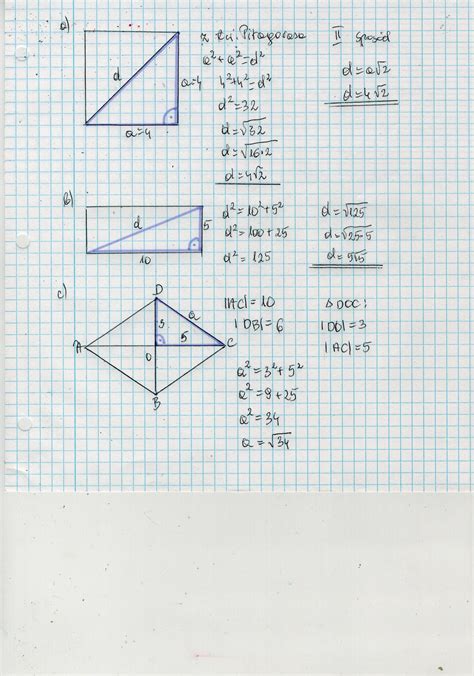 a)
d
a=4
a=4
z tw. Pitagorasa
a²+a²=d²
4²+4²=d²
d²=32
d=√32
d=√16·2
d=4√2
II sposób
d=a√2
d=4√2
b)
d
5
10
d²=10²+5²
d²=100+25
d²=125
d=√125
d=√25·5
d=5√5
c)
D
a
3
5
A
O
C
B
|AC|=10
|DB|=6
a²=3²+5²
a²=9+25
a²=34
a=√34
△ DOC:
|DO|=3
|AC|=5